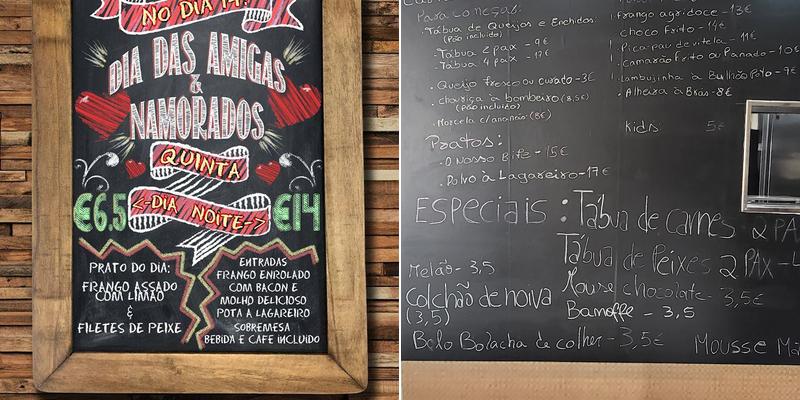 NO DIA 14!
DIA DAS AMIGAS
&
NAMORADOS
QUINTA
€6.5 <-DIA NOITE-> €14
PRATO DO DIA:
FRANGO ASSADO
COM LIMÃO
&
FILETES DE PEIXE
ENTRADAS
FRANGO ENROLADO
COM BACON E
MOLHO DELICIOSO
POTA A LAGAREIRO
SOBREMESA
BEBIDA E CAFE INCLUIDO
Para começar:
· Tábua de Queijos e Enchidos:
(Pão incluído)
· Tábua 2 pax - 9€
· Tábua 4 pax - 17€
· Queijo fresco ou curado - 3€
· chouriça à bombeiro (8,5€)
(pão incluído)
· Morcela c/ananás: (8€)
Pratos:
· O Nosso Bife - 15€
· Polvo à Lagareiro - 17€
· Frango agridoce - 13€
choco Frito - 14€
· Pica-pau de vitela - 11€
· camarão Frito ou Panado - 10€
· Lambujinha à Bulhão Pato - 9€
· Alheira à Brás - 8€
Kids: 5€
ESPECIAIS : Tábua de carnes - 2 PA
Tábua de Peixes 2 PAX - 4
Melão - 3,5
Colchão de noiva
(3,5)
Mouse chocolate - 3,5€
Banoffe - 3,5
Bolo Bolacha de colher - 3,5€
Mousse Ma